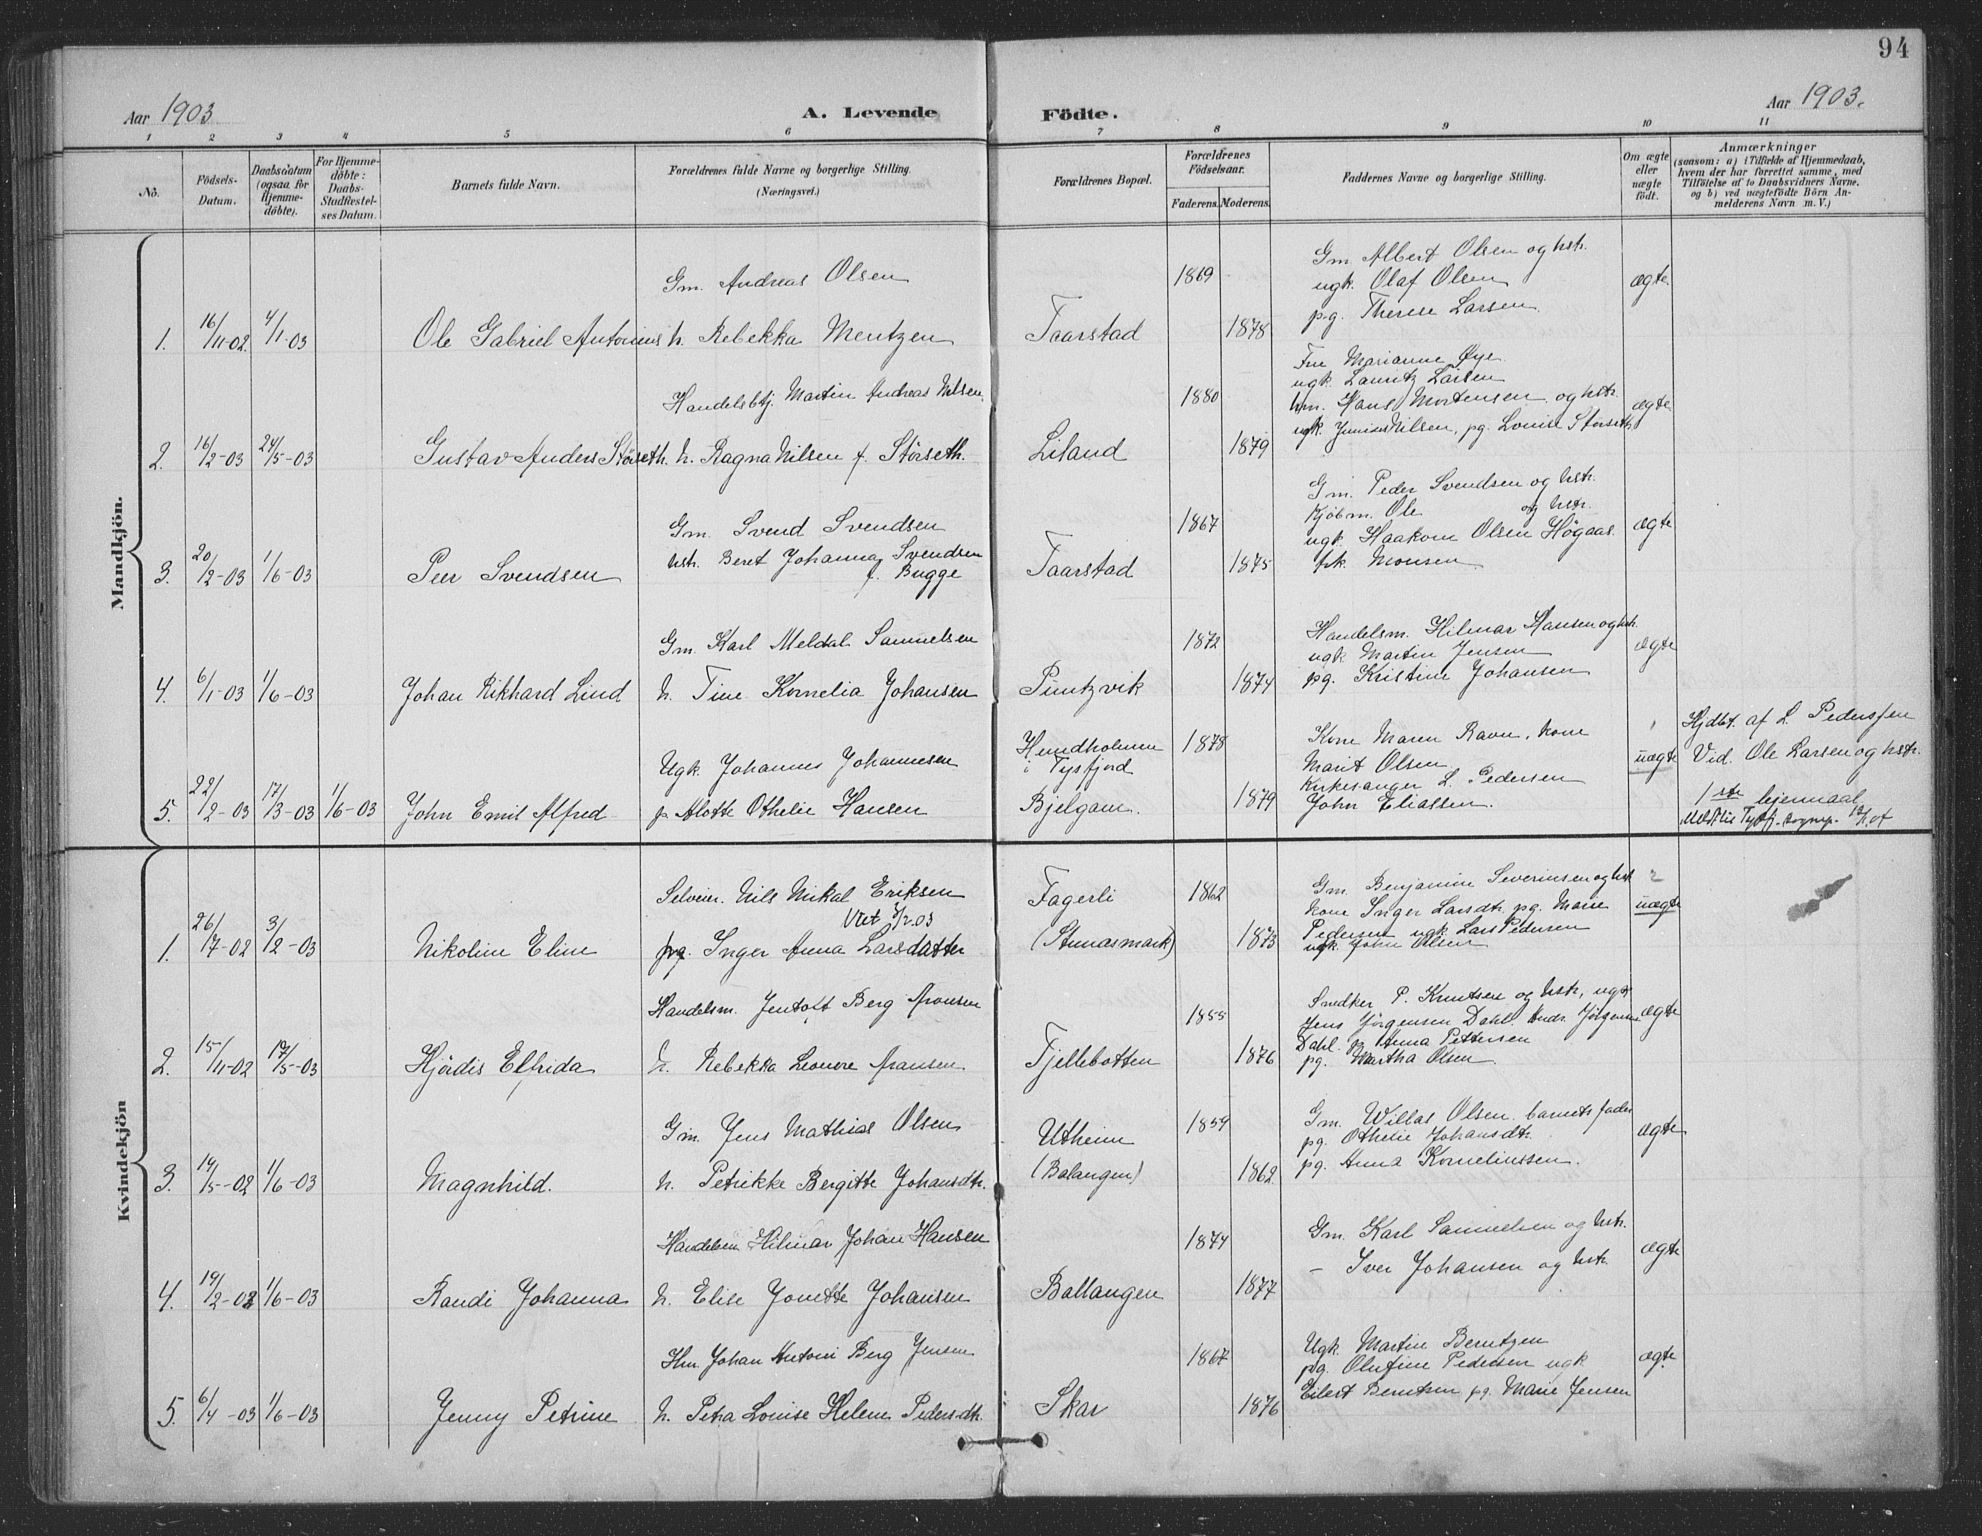 94
Aar 1903
A. Levende
Födte.
Aar 1903.
1 2 3 4 5 6 7 8 9 10 11
No.
Födsels-
Datum.
Daabsdatum
(ogsaa for
Hjemme-
döbte).
For Hjemme-
döbte:
Daabs-
Stadfæstel-
ses Datum.
Barnets fulde Navn.
Forældrenes fulde Navne og borgerlige Stilling.
(Næringsvei.)
Forældrenes Bopæl.
Forældrenes
Födselsaar.
Faderens. Moderens.
Faddernes Navne og borgerlige Stilling.
Om ægte
eller
uægte
födt.
Anmærkninger
(saasom: a) i Tilfælde af Hjemmedaab,
hvem der har forrettet samme, med
Tilföielse af to Daabsvidners Navne,
og b) ved uægtefödte Börn An-
melderens Navn m. V.)
Mandkjön.
Gm. Andreas Olsen
1869
Gm Albert Olsen og hstr.
ugk. Olaf Olsen
ægte
pg. Therese Larsen
1. 16/11-02 4/1-03 Ole Gabriel Antonius h. Rebekka Mentzen Taarstad 1878
Fru Marianne Øye
ugk. Lauritz Larsen
Handelsbtj. Martin Andreas Nilsen
1880
Hans Mortensen og hstr.
ægte
ugk. Nilsen, pg. Louise Störseth
2. 16/2-03 24/5-03 Gustav Anders Störseth. h. Ragna Nilsen f. Störseth. Liland 1879
Gm. Peder Svendsen og hstr.
Kjöbm. Ole og hstr.
Gm. Svend Svendsen
1867
ugk. Haakon Olsen Högaas
ægte
frk. Monsen
3. 20/2-03 1/6-03 Peer Svendsen hstr. Beret Johanna Svendsen f. Bugge Taarstad 1875
Gm. Karl Meldal Samuelsen
1872
Handelsm. Hilmar Hansen og hstr.
ugk. Martin Jensen
ægte
pg. Kristine Johansen
4. 6/1-03 1/6-03 Johan Rikhard Lind h. Tine Kornelia Johansen Puntzvik 1874
Ugk. Johannes Johannesen
Hundholmen
i Tysfjord
1878
Kone Maren Ravn, kone
Marit Olsen
Kirkesanger L. Pedersen
John Eliassen.
uægte
Hjdbt. af L. Pedersen
Vid. Ole Larsen og hstr.
1ste leiermaal
5. 22/2-03 17/3-03 1/6-03 John Emil Alfred p. Alotte Othelie Hansen Bjelgam. 1879
Kvindekjön
Nils Nikal Eriksen
Viet 03
Fagerli
1862
Gm. Benjamin Severinsen og hst
kone Inger Larsdtr. pg. Marie
Pedersen ugk. Lars Pedersen
ugk. John Olsen
uægte
1. 26/17-02 3/2-03 Nikoline Eline pg. Inger Anna Larsdatter (Stunasmark) 1873
Handelsm. Jentoft Berg Aronsen
1855
Snedker P. Knutsen og hstr., ugk
Jens Jörgensen Dahl. Andr. Jörgensen
Dahl. p. Anna Pettersen
pg. Martha Olsen
ægte
2. 15/11-02 17/5-03 Hjördis Elfrida h. Rebekka Leonore Aronsen Tjellebotten 1876
Gm. Jens Mathias Olsen
1859
Gm. Willas Olsen. barnets fader
pg. Othelie Johansdtr.
pg. Anna Korneliussen.
ægte
3. 14/5-02 1/6-03 Magnhild. h. Petrikke Bergitte Johansdtr. Utheim (Balangen) 1862
Handelsm Hilmar Johan Hansen
1874
Gm. Karl Samuelsen og hstr.
– Iver Johansen og hstr.
ægte
4. 19/2-03 1/6-03 Randi Johanna h. Elise Jonette Johansen Ballangen 1877
Hm Johan Antoni Berg Jensen
1867
Ugk. Martin Berntzen
pg. Olufine Pedersen ugk
Eilert Berntzen pg. Marie Jensen
ægte
5. 6/4-03 1/6-03 Jenny Petrine h. Petra Louise Helene Pedersdtr. Skar 1876